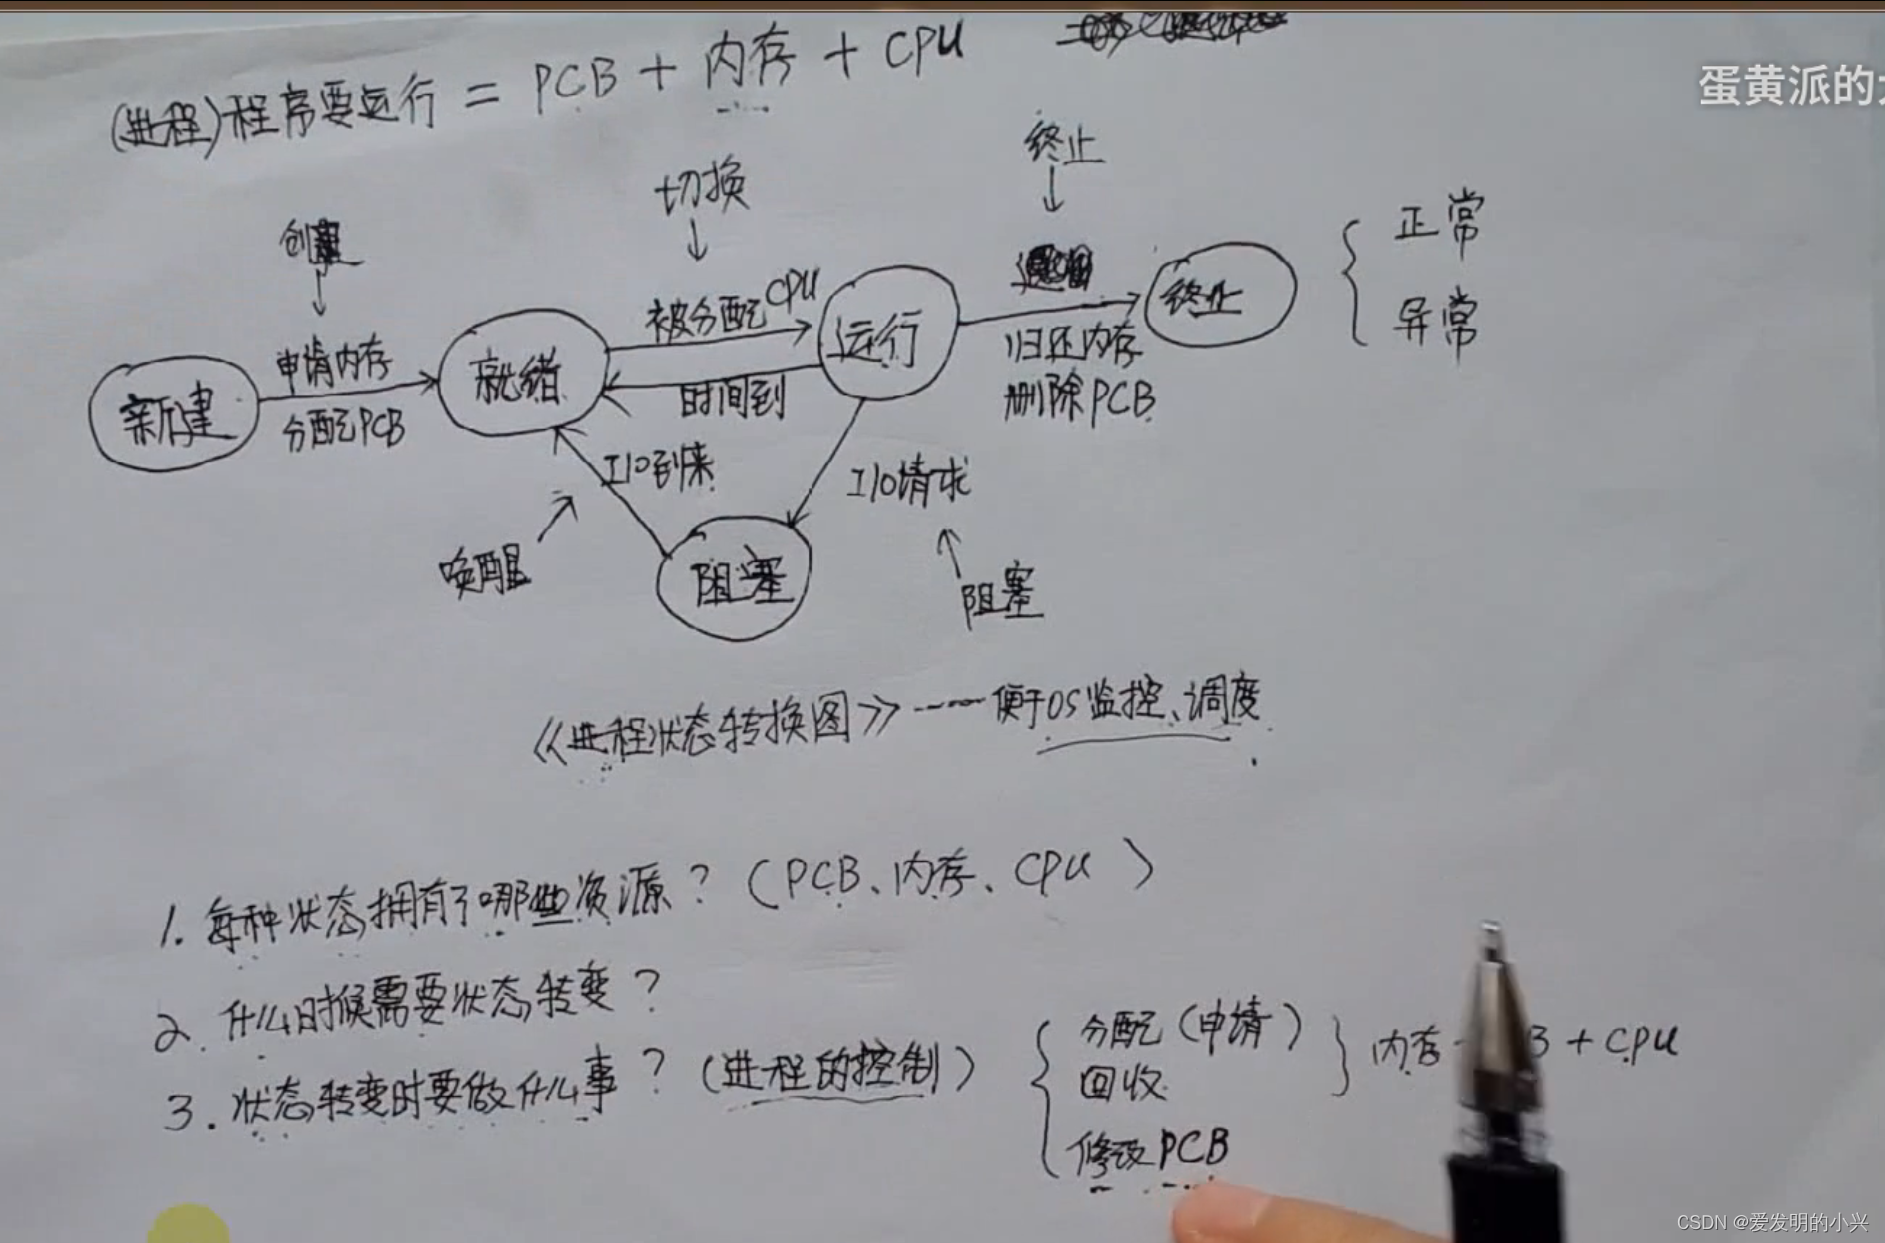 (进程)程序要运行 = PCB + 内存 + CPU
蛋黄派的
终止
切换
创建
正常
被分配CPU
申请内存
新建
就绪
运行
终止
异常
归还内存
时间到
分配PCB
删除PCB
I/O到来
I/O请求
唤醒
阻塞
阻塞
《进程状态转换图》----便于OS监控、调度
1. 每种状态拥有了哪些资源?(PCB、内存、CPU)
2. 什么时候需要状态转变?
3. 状态转变时要做什么事?(进程的控制)
分配(申请)
回收
内存 + CPU
修改PCB
CSDN @爱发明的小兴